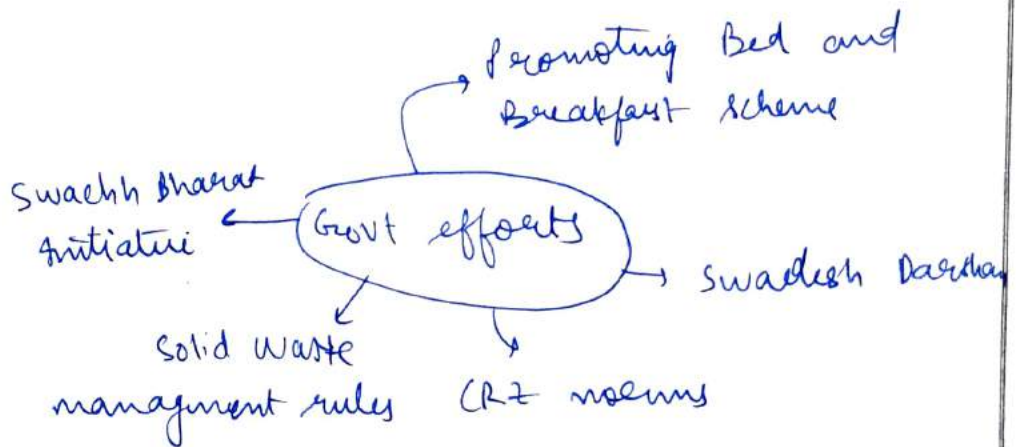 Promoting Bed and
Breakfast scheme
Swachh Bharat
Initiative
Govt efforts
Swadesh Darshan
Solid Waste
managment rules
CRZ norms